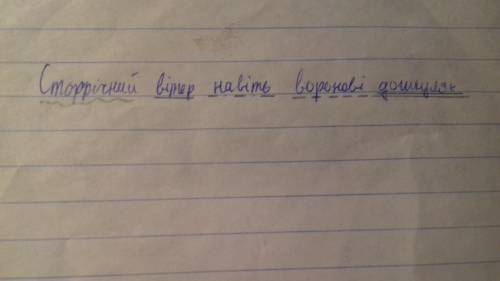 Сторрічний вітер навіть воронові дошкуляє